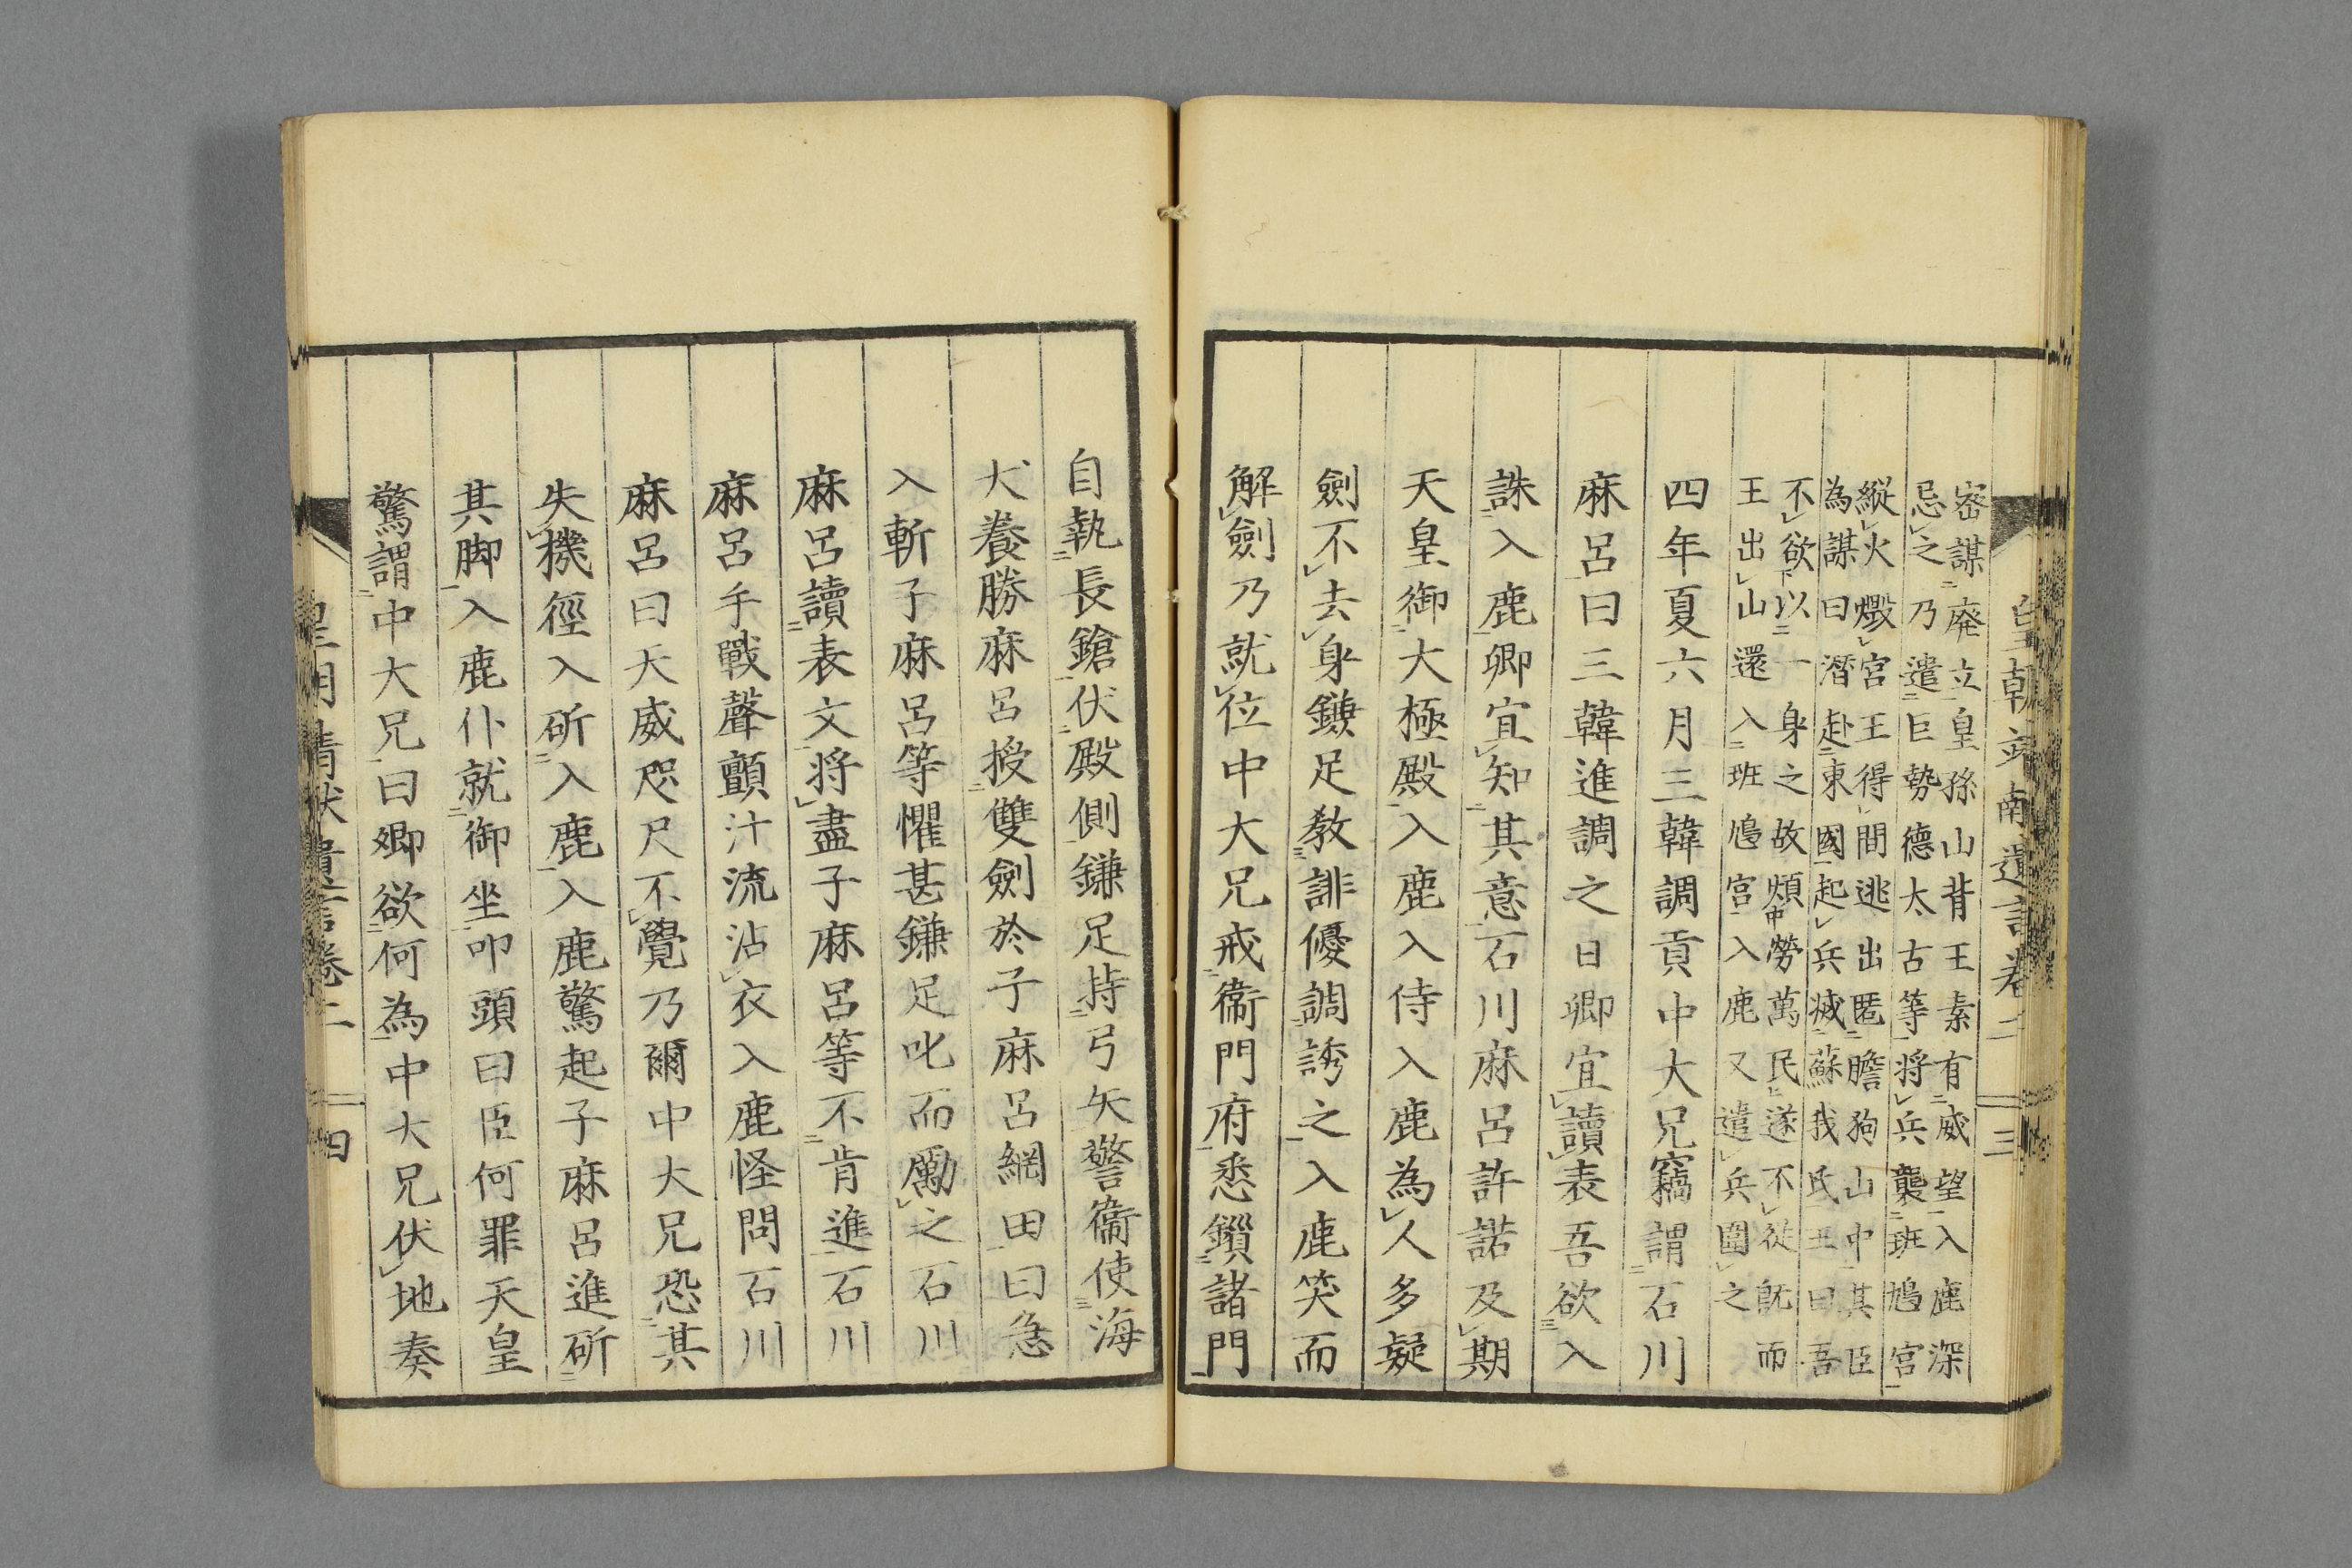 皇朝靖献遺言卷二
三
密謀廃立皇孫山背王素有威望入鹿深
忌之乃遣巨勢德太古等将兵襲班鳩宮
縱火燬宮王得間逃出匿膽狗山中其臣
為謀曰潜赴東國起兵滅蘇我氏王曰吾
不欲以一身之故煩勞萬民遂不從既而
王出山還入班鳩宮入鹿又遣兵圍之
四年夏六月三韓調貢中大兄竊謂石川
麻呂曰三韓進調之日卿宜讀表吾欲入
誅入鹿卿宜知其意石川麻呂許諾及期
天皇御大極殿入鹿入侍入鹿為人多疑
劍不去身鎌足教誹優調誘之入鹿笑而
解劍乃就位中大兄戒衞門府悉鎖諸門
自執長鎗伏殿側鎌足持弓矢警衞使海
犬養勝麻呂授雙劍於子麻呂綱田曰急
入斬子麻呂等懼甚鎌足叱而勵之石川
麻呂讀表文将盡子麻呂等不肯進石川
麻呂手戰聲顫汁流沾衣入鹿怪問石川
麻呂曰天威咫尺不覺乃爾中大兄恐其
失機徑入斫入鹿入鹿驚起子麻呂進斫
其脚入鹿仆就御坐叩頭曰臣何罪天皇
驚謂中大兄曰卿欲何為中大兄伏地奏
皇朝靖献遺言卷二
四